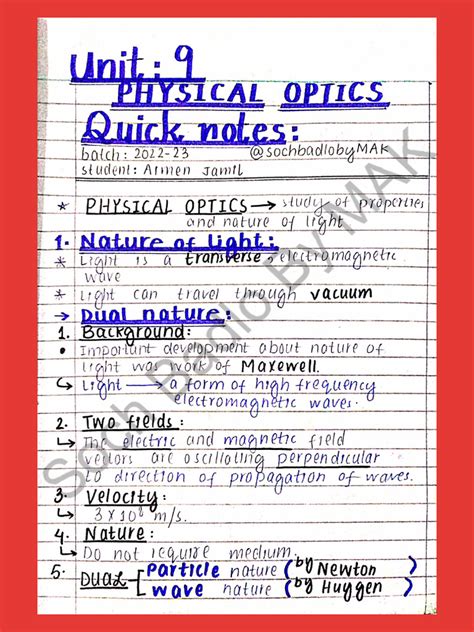 Unit: 9
PHYSICAL OPTICS
Quick notes:
batch: 2022-23 @sochbadlobyMAK
student: Aimen Jamil
* PHYSICAL OPTICS → study of properties
and nature of light
1. Nature of Light:
* Light is a transverse electromagnetic
wave
* Light can travel through vacuum
→ Dual nature:
1. Background:
• Important development about nature of
light was work of Maxwell.
↳ Light → a form of high frequency
electromagnetic waves.
2. Two fields:
↳ The electric and magnetic field
vectors are oscillating perpendicular
to direction of propagation of waves.
3. Velocity:
↳ 3×10⁸ m/s.
4. Nature:
↳ Do not require medium.
5. Dual particle nature (by Newton)
wave nature (by Huygen)
Soch Badlo By MAK